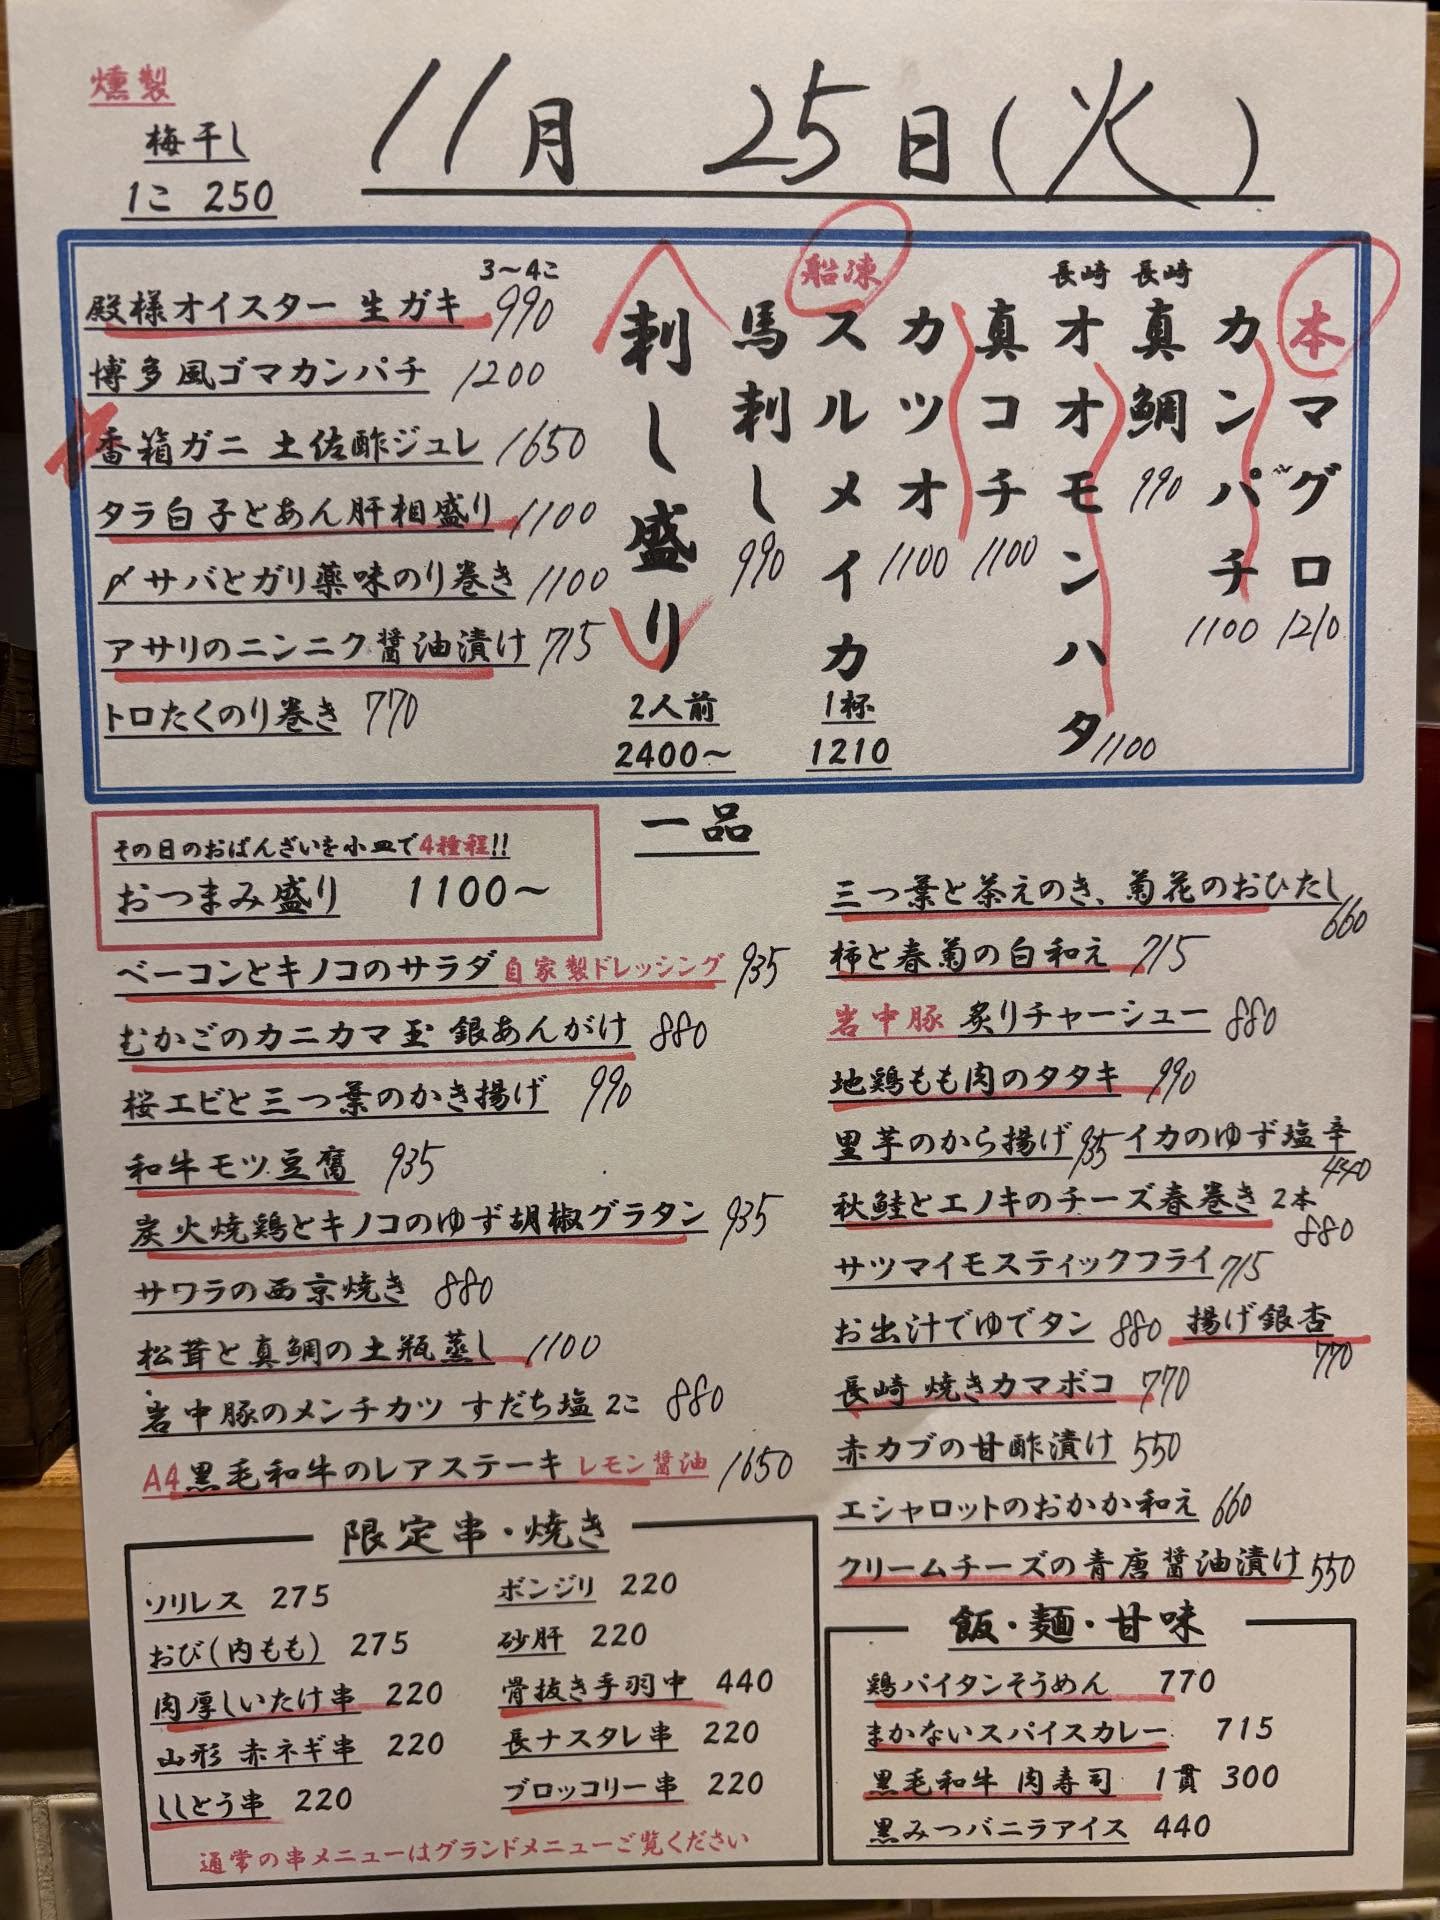 燻製
梅干し
1こ 250
11月 25日(火)
殿様オイスター 生ガキ 3〜4こ 990
博多風ゴマカンパチ 1200
香箱ガニ 土佐酢ジュレ 1650
タラ白子とあん肝相盛り 1100
〆サバとガリ薬味のり巻き 1100
アサリのニンニク醤油漬け 715
トロたくのり巻き 770
本マグロ 1210
カンパチ 1100
長崎 真鯛 990
長崎 オオモンハタ 1100
真コチ 1100
カツオ 1100
船凍 スルメイカ 1杯 1210
馬刺し 990
刺し盛り 2人前 2400〜
一品
その日のおばんざいを小皿で4種程!!
おつまみ盛り 1100〜
ベーコンとキノコのサラダ 自家製ドレッシング 935
むかごのカニカマ玉 銀あんがけ 880
桜エビと三つ葉のかき揚げ 990
和牛モツ豆腐 935
炭火焼鶏とキノコのゆず胡椒グラタン 935
サワラの西京焼き 880
松茸と真鯛の土瓶蒸し 1100
岩中豚のメンチカツ すだち塩 2こ 880
A4黒毛和牛のレアステーキ レモン醤油 1650
三つ葉と茶えのき、菊花のおひたし 660
柿と春菊の白和え 715
岩中豚 炙りチャーシュー 880
地鶏もも肉のタタキ 990
里芋のから揚げ 935 イカのゆず塩辛 440
秋鮭とエノキのチーズ春巻き 2本 880
サツマイモスティックフライ 715
お出汁でゆでタン 880 揚げ銀杏 770
長崎 焼きカマボコ 770
赤カブの甘酢漬け 550
エシャロットのおかか和え 660
クリームチーズの青唐醤油漬け 550
限定串・焼き
ソリレス 275
おび(内もも) 275
肉厚しいたけ串 220
山形 赤ネギ串 220
ししとう串 220
ボンジリ 220
砂肝 220
骨抜き手羽中 440
長ナスタレ串 220
ブロッコリー串 220
通常の串メニューはグランドメニューご覧ください
飯・麺・甘味
鶏パイタンそうめん 770
まかないスパイスカレー 715
黒毛和牛 肉寿司 1貫 300
黒みつバニラアイス 440